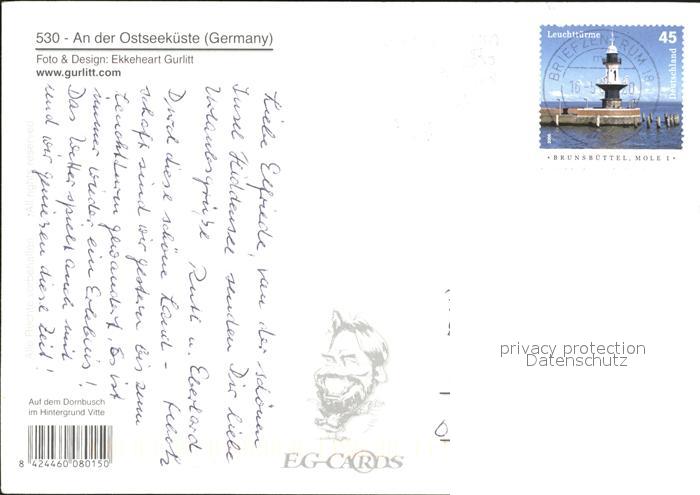 530 - An der Ostseeküste (Germany)
Foto & Design: Ekkeheart Gurlitt
www.gurlitt.com
Liebe Elfriede, von der schönen
Insel Hiddensee senden Dir liebe
Urlaubsgrüße Ruth u. Eberhard
Durch diese schöne Land-
schaft sind wir gestern bis zum
Leuchtturm gewandert. Es ist
immer wieder ein Erlebnis!
Das Wetter spielt auch mit
und wir genießen diese Zeit!
Auf dem Dornbusch
im Hintergrund Vitte
8 424460 080150
EG-CARDS
Leuchttürme
45
Deutschland
BRIEFZENTRUM 18
• BRUNSBÜTTEL, MOLE 1 •
privacy protection
Datenschutz